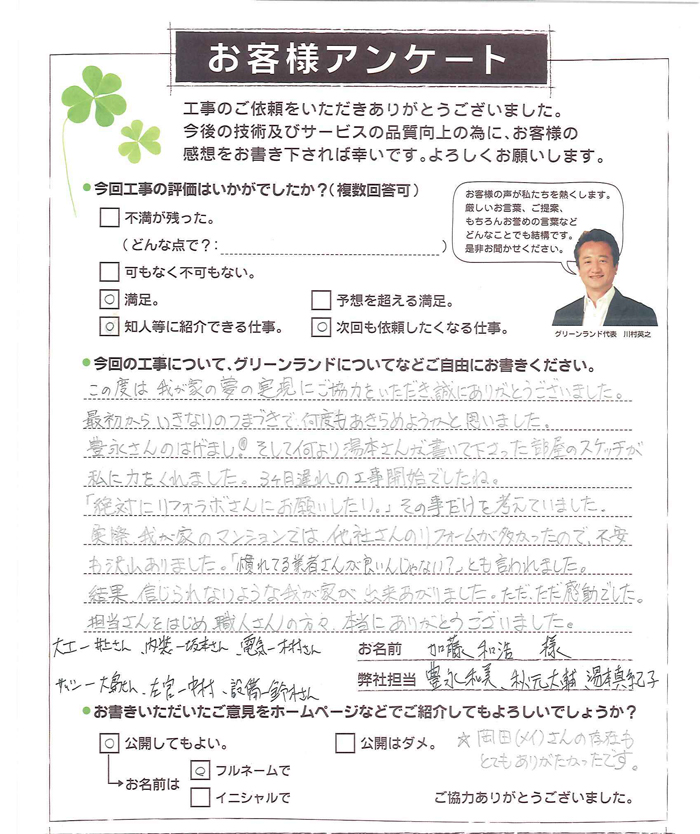 お客様アンケート
工事のご依頼をいただきありがとうございました。
今後の技術及びサービスの品質向上の為に、お客様の
感想をお書き下されば幸いです。よろしくお願いします。
今回工事の評価はいかがでしたか？（複数回答可）
不満が残った。
（どんな点で？：　）
可もなく不可もない。
○ 満足。
予想を超える満足。
○ 知人等に紹介できる仕事。
○ 次回も依頼したくなる仕事。
お客様の声が私たちを熱くします。
厳しいお言葉、ご提案、
もちろんお誉めの言葉など
どんなことでも結構です。
是非お聞かせください。
グリーンランド代表　川村英之
今回の工事について、グリーンランドについてなどご自由にお書きください。
この度は我が家の夢の実現にご協力をいただき誠にありがとうございました。
最初からいきなりのつまづきで、何度もあきらめようかと思いました。
豊永さんのはげまし！そして何より湯本さんが書いて下さった部屋のスケッチが
私に力をくれました。3ヶ月遅れの工事開始でしたね。
「絶対にリフォラボさんにお願いしたい。」その事だけを考えていました。
実際、我が家のマンションでは他社さんのリフォームが多かったので、不安
も沢山ありました。「慣れてる業者さんが良いんじゃない？」とも言われました。
結果、信じられないような我が家が出来あがりました。ただ、ただ感動でした。
担当さんをはじめ、職人さんの方々、本当にありがとうございました。
大工-井上さん、内装-坂本さん、電気-木村さん
サッシ-大島さん、左官-中村、設備-鈴木さん
お名前　加藤　和浩　様
弊社担当　豊永和美、秋元大輔、湯本真紀子
お書きいただいたご意見をホームページなどでご紹介してもよろしいでしょうか？
○ 公開してもよい。
公開はダメ。
☆ 岡田(メイ)さんの存在も
とてもありがたかったです。
お名前は
○ フルネームで
イニシャルで
ご協力ありがとうございました。